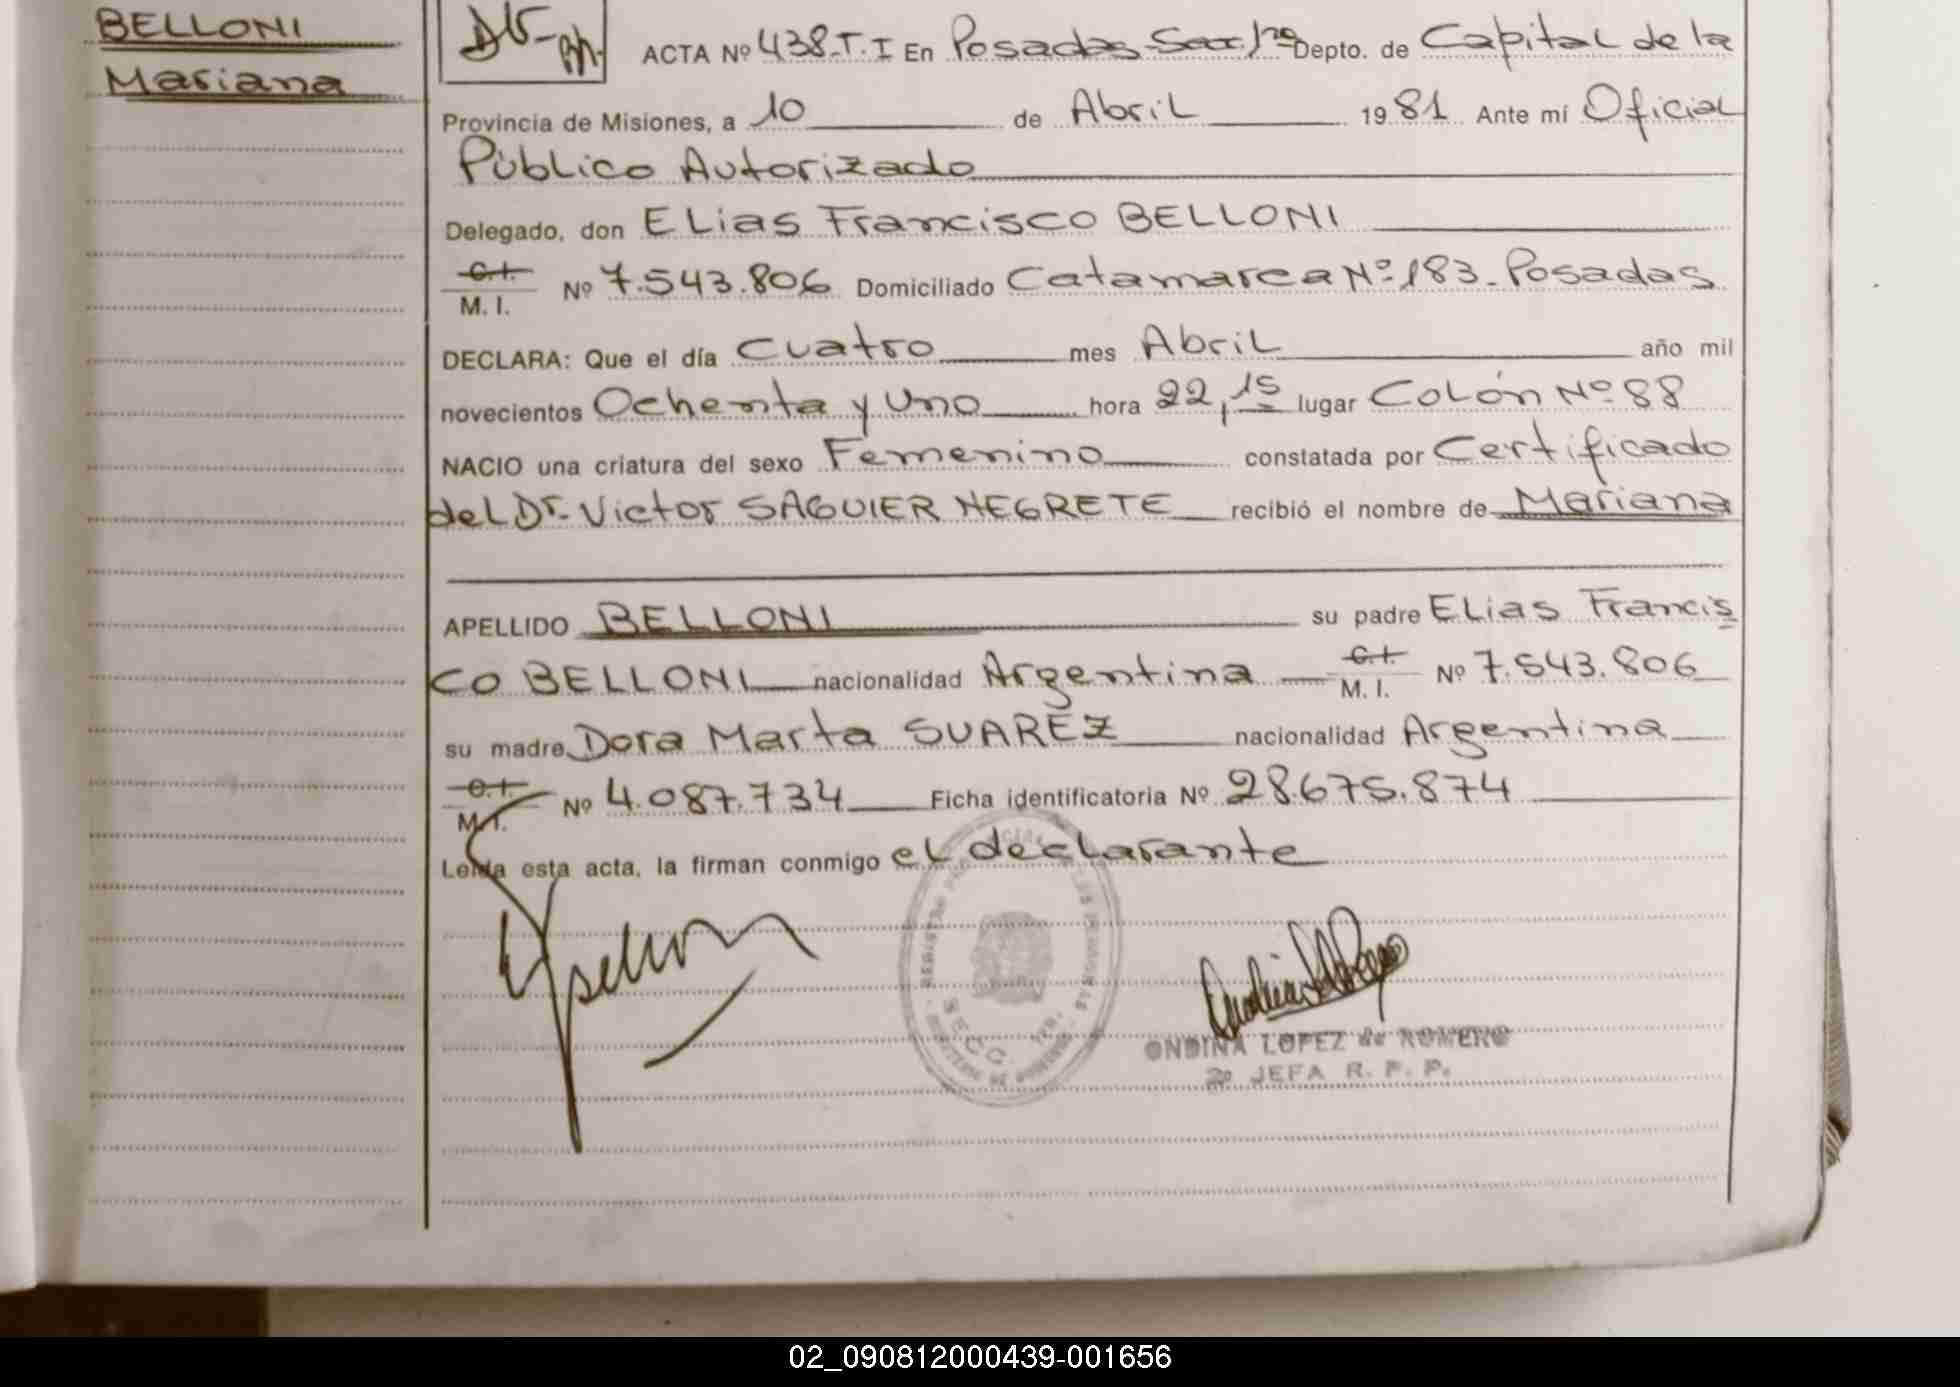 BELLONI
Mariana
ACTA Nº 438.T.I En Posadas Secc. 1ra Depto. de Capital de la
Provincia de Misiones, a 10 de Abril 1981 Ante mí Oficial
Público Autorizado
Delegado, don Elias Francisco BELLONI
C.I.
M. I. Nº 7.543.806 Domiciliado Catamarca Nº 183 - Posadas
DECLARA: Que el día Cuatro mes Abril año mil
novecientos Ochenta y Uno hora 22,15 lugar Colón Nº 88
NACIO una criatura del sexo Femenino constatada por Certificado
del Dr. Victor SAGUIER NEGRETE recibió el nombre de Mariana
APELLIDO BELLONI su padre Elias Francis
co BELLONI nacionalidad Argentina C.I. M. I. Nº 7.543.806
su madre Dora Marta SUAREZ nacionalidad Argentina
C.I.
M. I. Nº 4.087.734 Ficha identificatoria Nº 28.675.874
Leída esta acta, la firman conmigo el declarante
ONDINA LOPEZ de ROMERO
2º JEFA R. P. P.
02_090812000439-001656